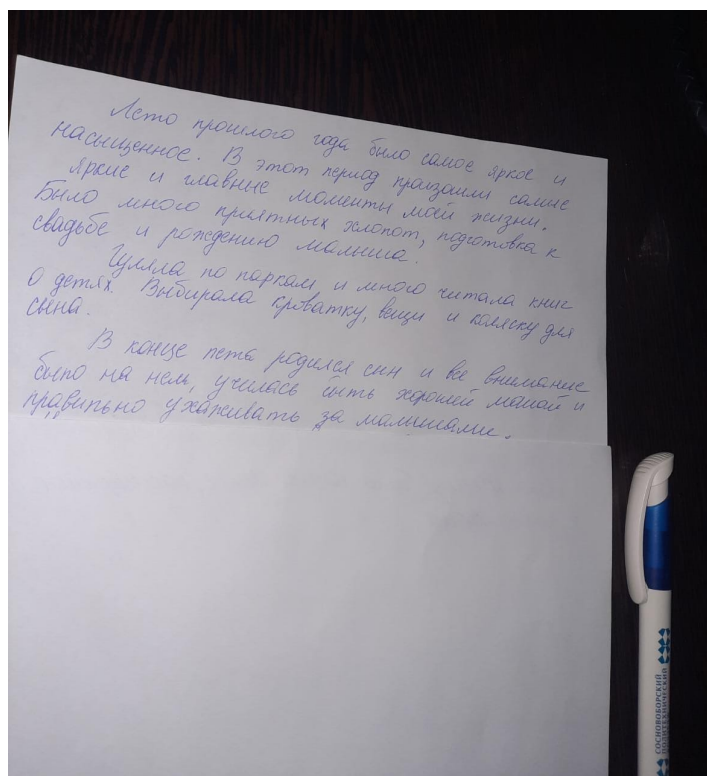 Лето прошлого года было самое яркое и
насыщенное. В этот период произошли самые
яркие и главные моменты моей жизни.
Было много приятных хлопот, подготовка к
свадьбе и рождению малыша.
Гуляла по паркам и много читала книг
о детях. Выбирала кроватку, вещи и коляску для
сына.
В конце лета родился сын и всё внимание
было на нём, училась быть хорошей мамой и
правильно ухаживать за малышами.
СОСНОВОБОРСКИЙ
ПОЛИТЕХНИЧЕСКИЙ